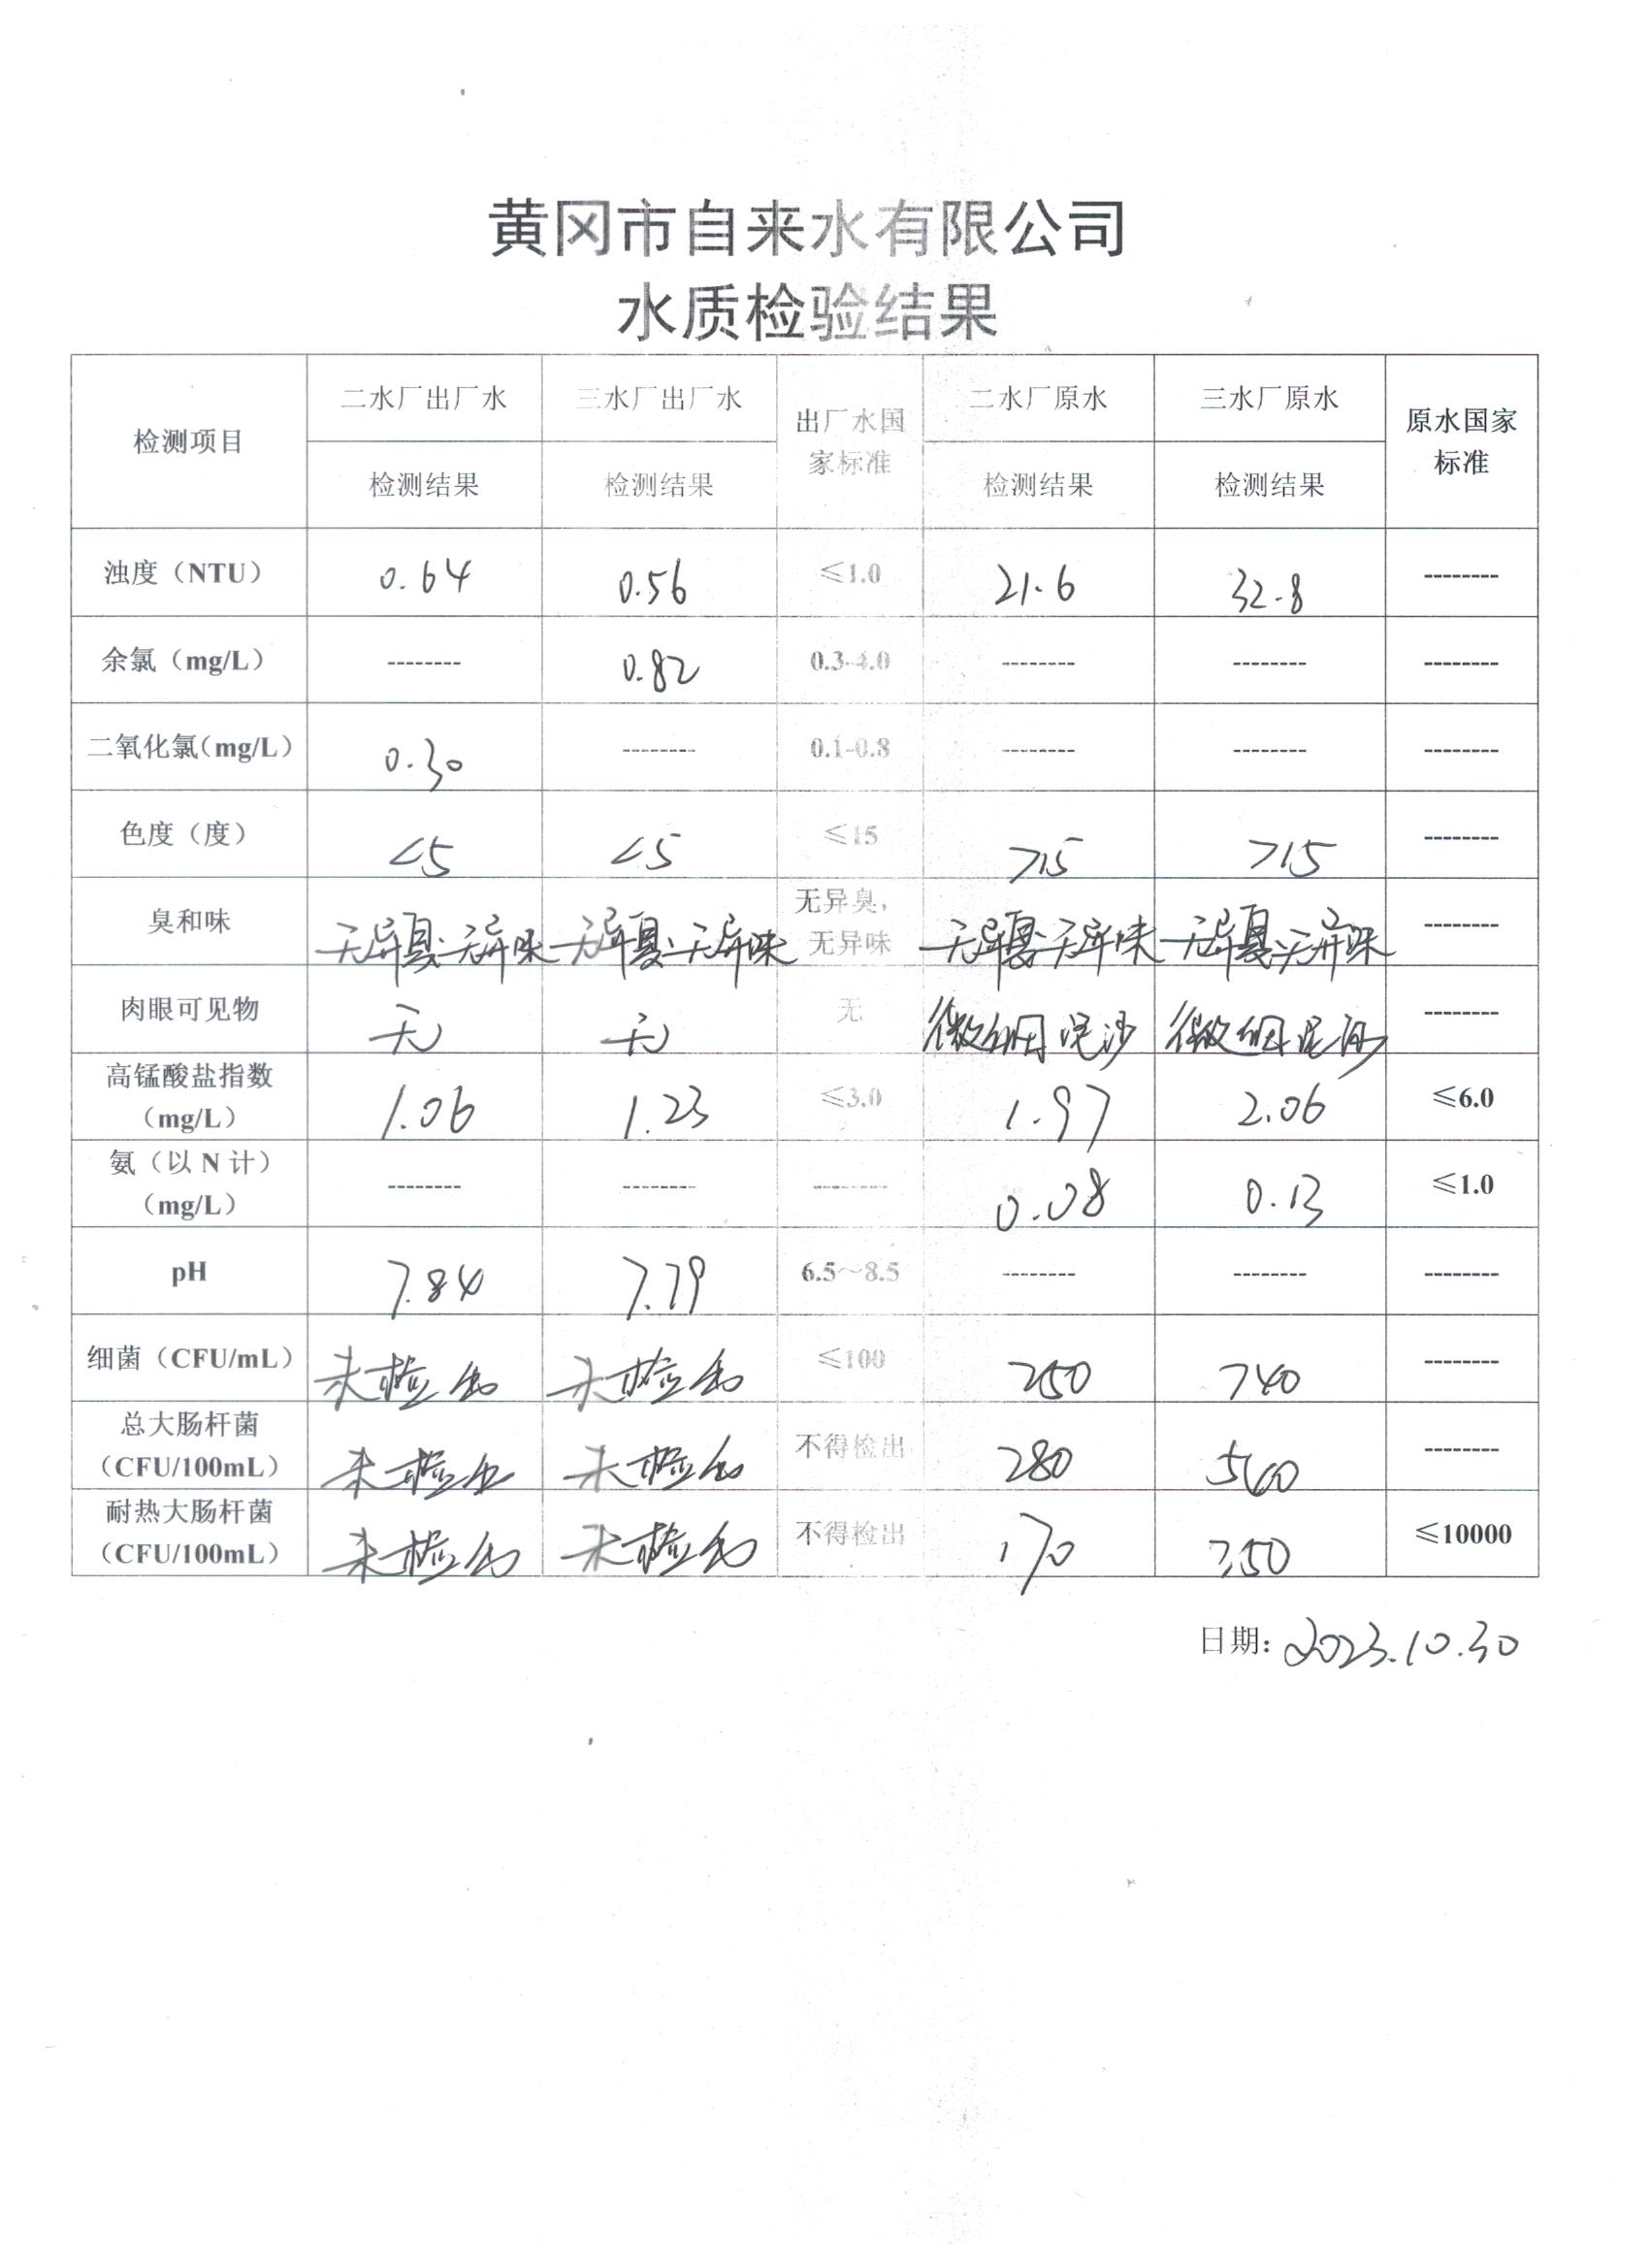 黄冈市自来水有限公司
水质检验结果
检测项目 二水厂出厂水 三水厂出厂水 出厂水国家标准 二水厂原水 三水厂原水 原水国家标准
检测结果 检测结果 检测结果 检测结果
浊度（NTU） 0.64 0.56 ≤1.0 21.6 32.8 --------
余氯（mg/L） -------- 0.82 0.3-4.0 -------- -------- --------
二氧化氯（mg/L） 0.30 -------- 0.1-0.8 -------- -------- --------
色度（度） <5 <5 ≤15 >15 >15 --------
臭和味 无异臭、无异味 无异臭、无异味 无异臭，无异味 无异臭、无异味 无异臭、无异味 --------
肉眼可见物 无 无 无 微细泥沙 微细泥沙 --------
高锰酸盐指数（mg/L） 1.06 1.23 ≤3.0 1.97 2.06 ≤6.0
氨（以 N 计）（mg/L） -------- -------- -------- 0.08 0.13 ≤1.0
pH 7.84 7.79 6.5～8.5 -------- -------- --------
细菌（CFU/mL） 未检出 未检出 ≤100 740 --------
总大肠杆菌（CFU/100mL） 未检出 未检出 不得检出 280 560 --------
耐热大肠杆菌（CFU/100mL） 未检出 未检出 不得检出 170 350 ≤10000
日期: 2023.10.30